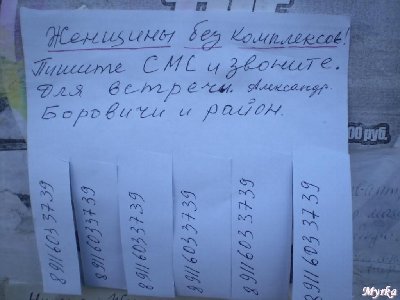 Женщины без комплексов!
Пишите СМС и звоните.
Для встречи. Александр.
Боровичи и район.
00 руб.
89116033739
89116033739
89116033739
89116033739
89116033739
89116033739
Myrka